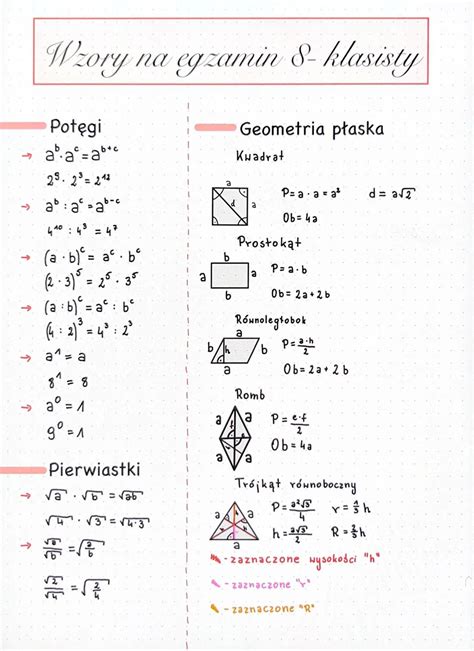 Wzory na egzamin 8-klasisty
Potęgi
→ a^b · a^c = a^(b+c)
2^9 · 2^3 = 2^12
→ a^b : a^c = a^(b-c)
4^10 : 4^3 = 4^7
→ (a · b)^c = a^c · b^c
(2 · 3)^5 = 2^5 · 3^5
→ (a : b)^c = a^c : b^c
(4 : 2)^3 = 4^3 : 2^3
→ a^1 = a
8^1 = 8
→ a^0 = 1
9^0 = 1
Pierwiastki
→ √a · √b = √ab
√4 · √3 = √4·3
→ √a/√b = √(a/b)
√2/√4 = √(2/4)
Geometria płaska
Kwadrat
a
d
a
P = a · a = a²
d = a√2
Ob = 4a
Prostokąt
b
a
a
b
P = a · b
Ob = 2a + 2b
Równoległobok
a
b
h
b
a
P = a·h/2
Ob = 2a + 2b
Romb
a
a
e
f
a
a
P = e·f/2
Ob = 4a
Trójkąt równoboczny
a
a
a
P = a²√3/4
r = 1/3 h
h = a√3/2
R = 2/3 h
- zaznaczone wysokości "h"
- zaznaczone "r"
- zaznaczone "R"